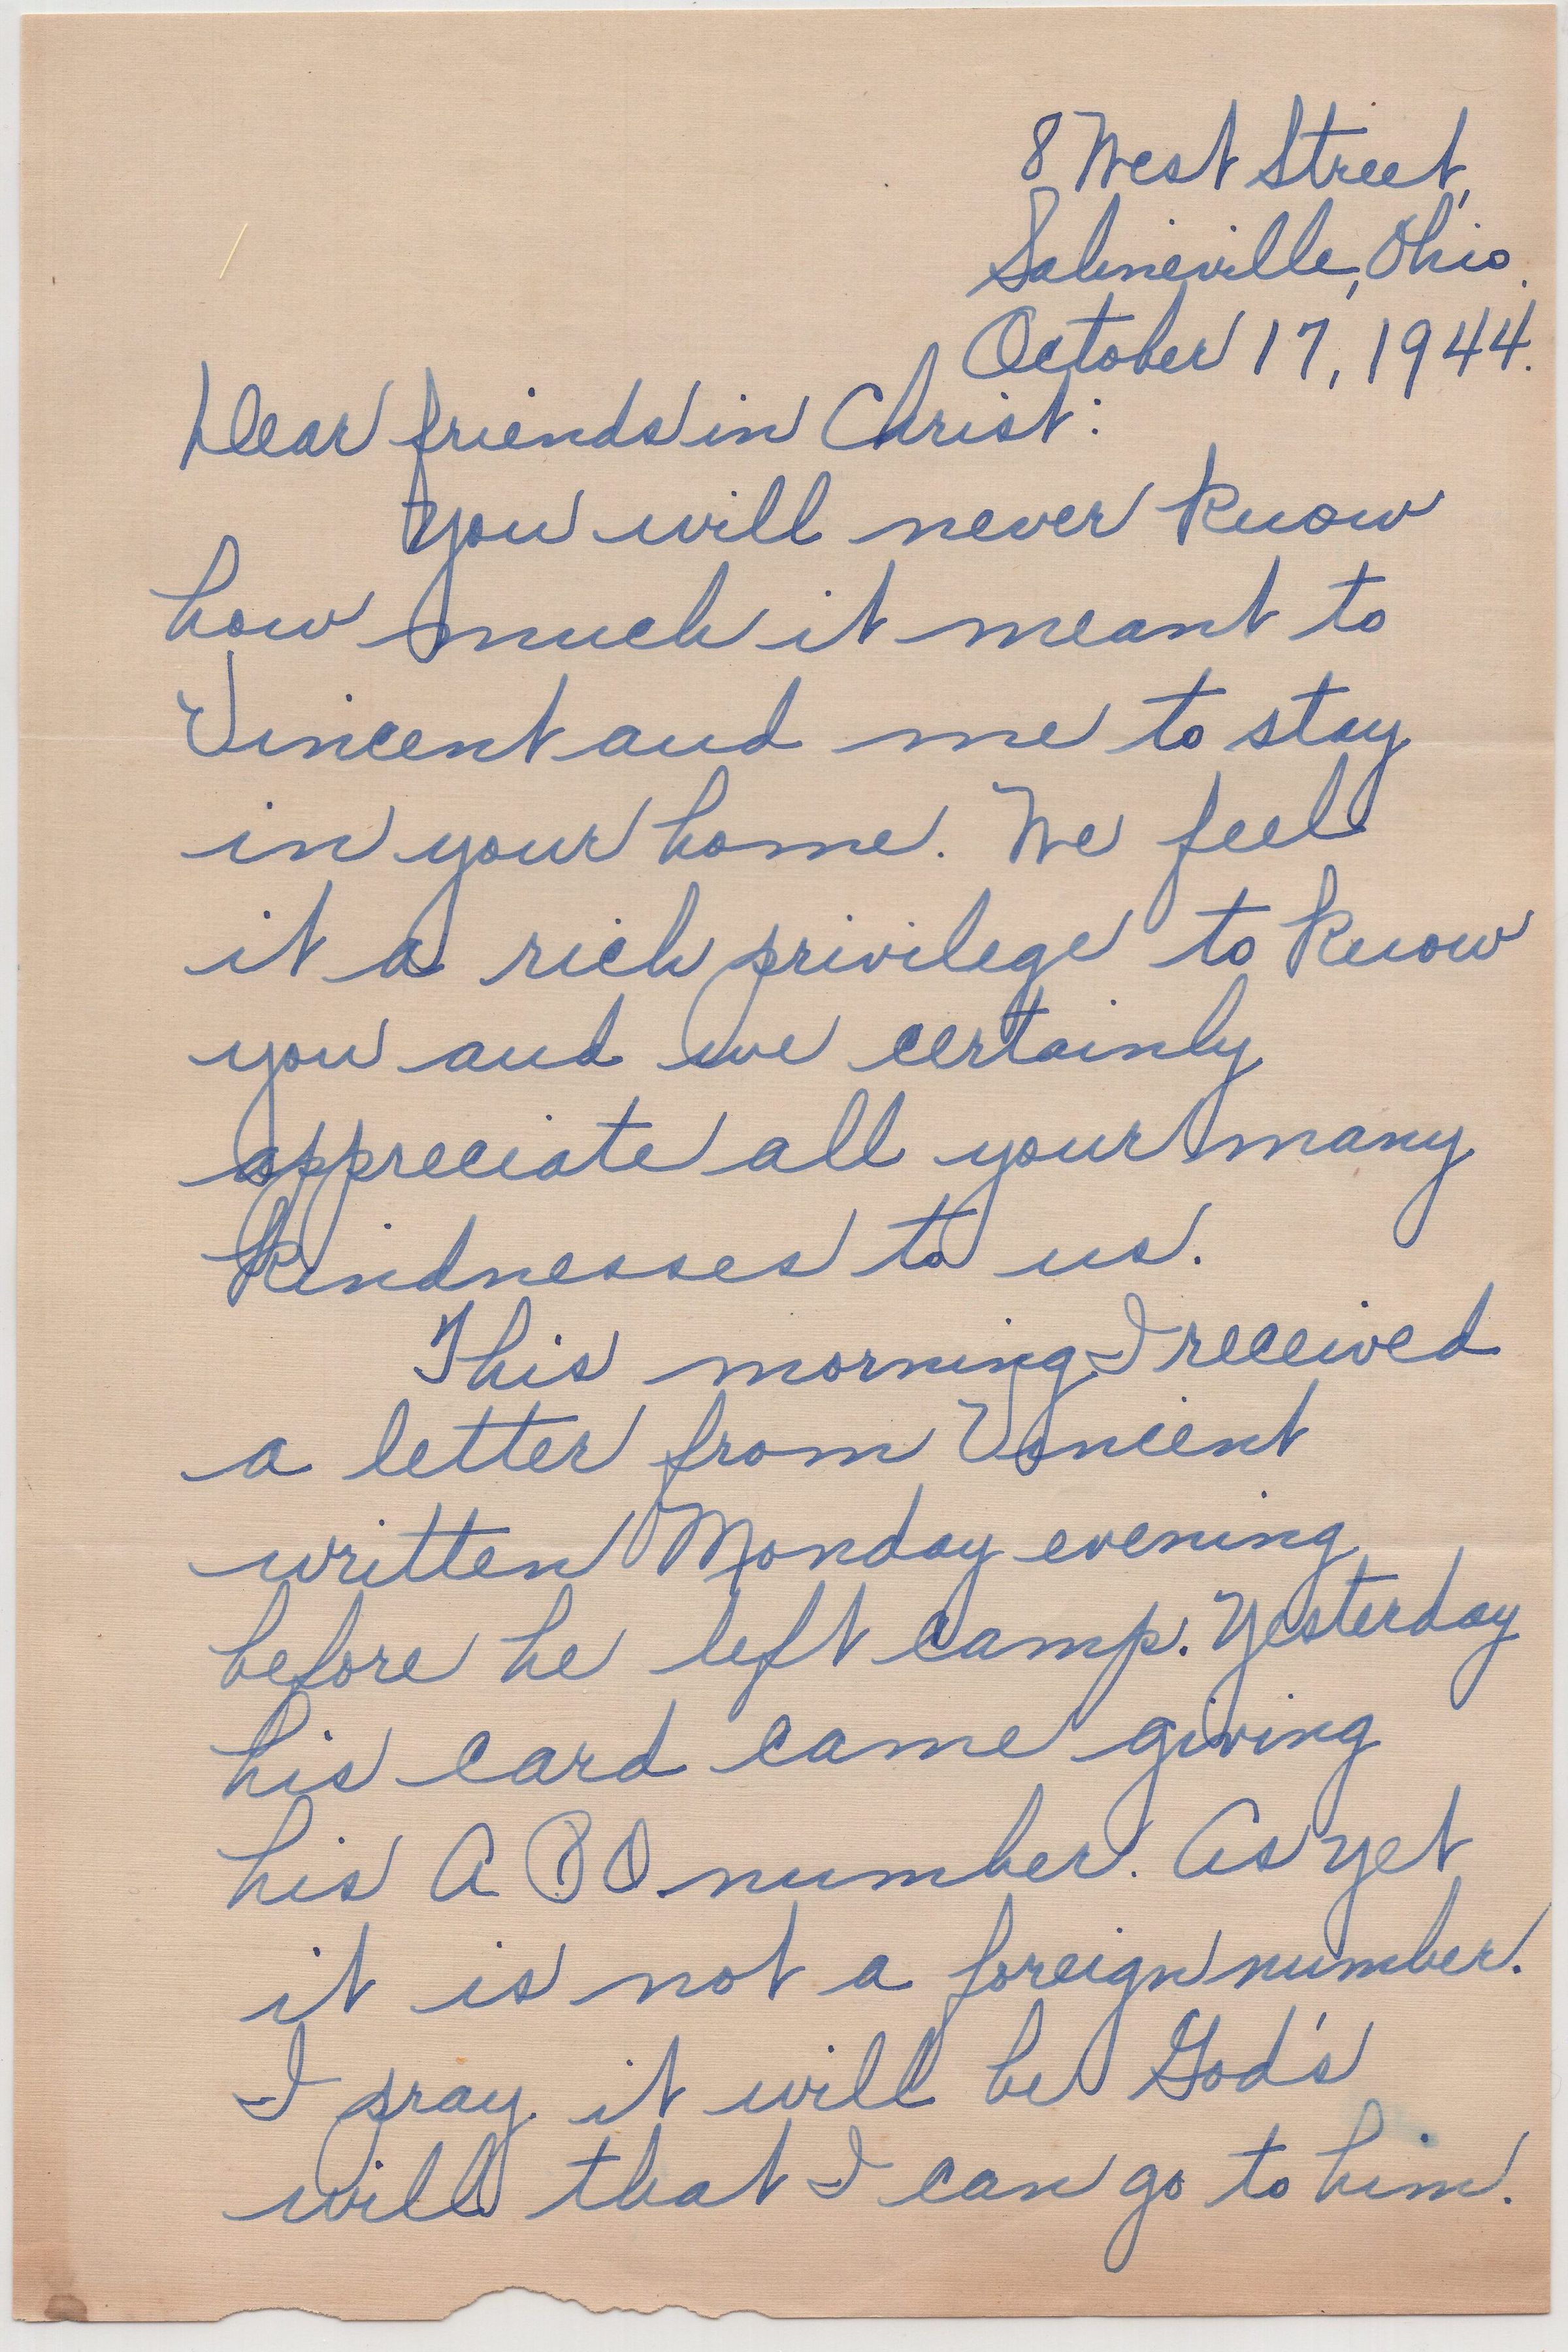 8 West Street,
Salineville, Ohio.
October 17, 1944.
Dear friends in Christ:
You will never know
how much it meant to
Vincent and me to stay
in your home. We feel
it a rich privilege to know
you and we certainly
appreciate all your many
kindnesses to us.
This morning I received
a letter from Vincent
written Monday evening
before he left camp. Yesterday
his card came giving
his A.P.O. number. As yet
it is not a foreign number.
I pray it will be God's
will that I can go to him.